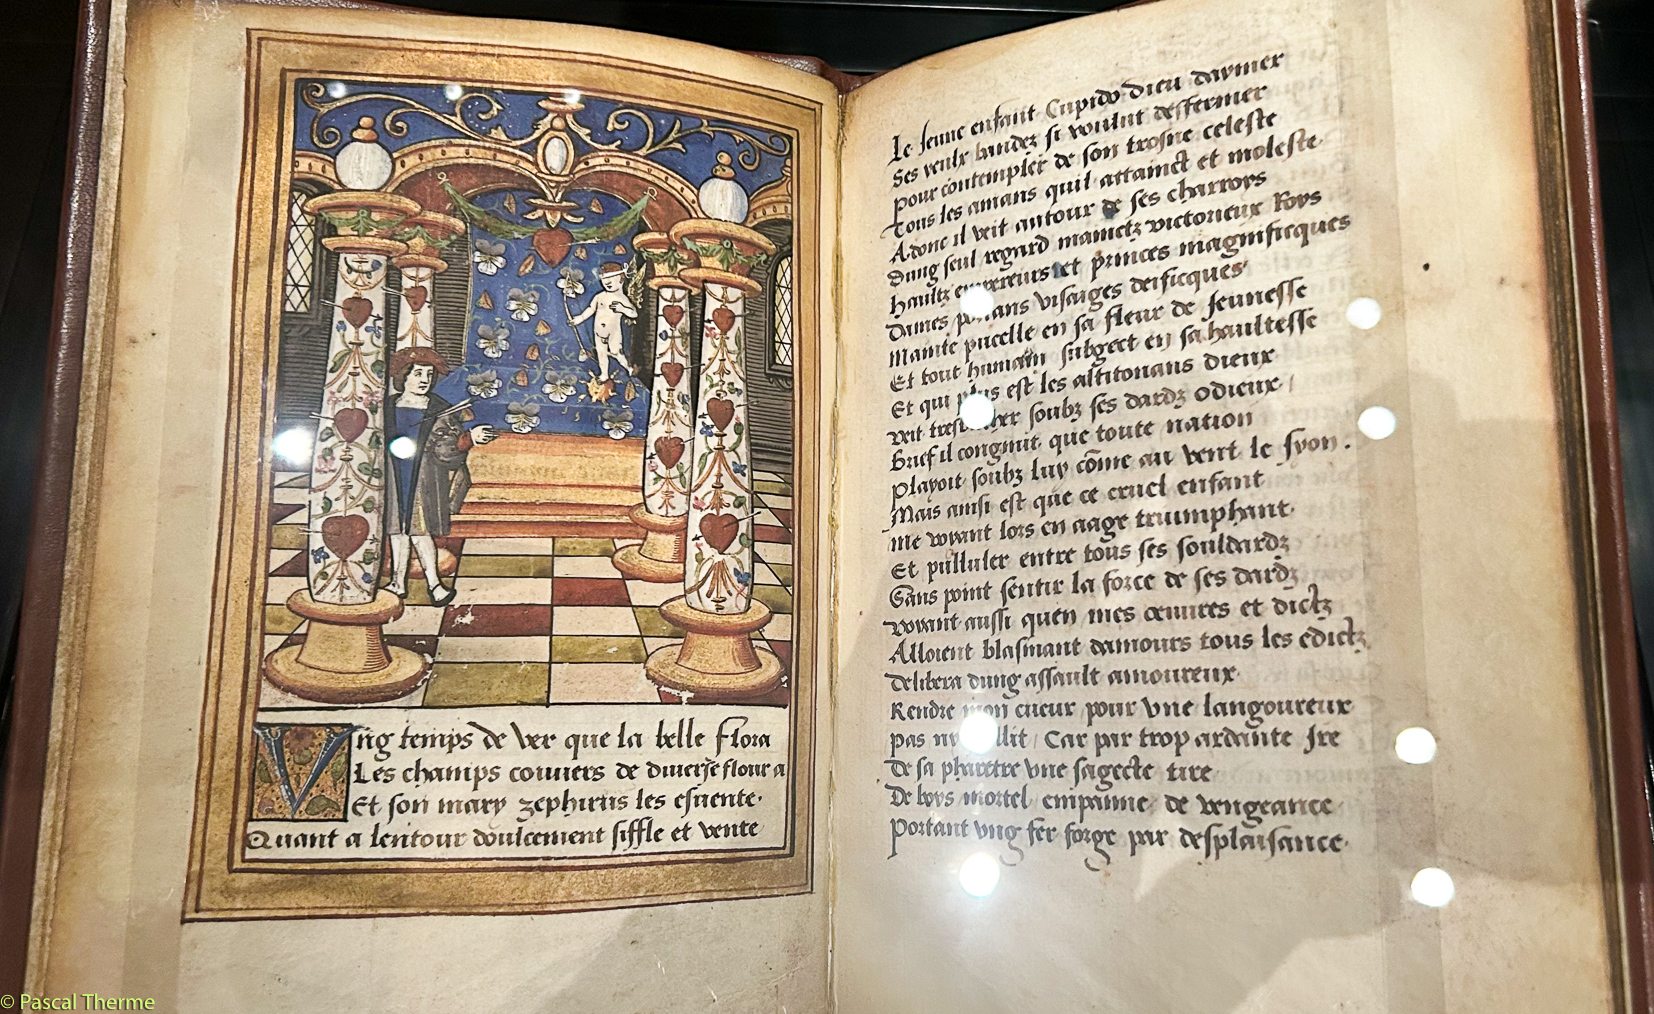 Vng temps de ver que la belle flora
Les champs couuers de diuerse flour a
Et son mary zephirus les esuente.
Quant a lentour doulcement siffle et vente
Le Jeune enfant Cupido dieu daymer
Ses yeulx bandez si voulut deffermer
Pour contempler de son trosne celeste
Tous les amans quil attainct et moleste.
Adonc il veit autour de ses charroys
Dung seul regard maintz victorieux Roys
Haultz empereurs et princes magnificques
Dames portans visaiges deificques
Mainte pucelle en sa fleur de Jeunesse
Et tout humain subgect en sa haultesse
Et qui plus est les altitonans dieux
Veit tresbucher soubz ses dardz odieux
Brief il congnut que toute nation
Playoit soubz luy côme au vent le syon.
Mais ainsi est que ce cruel enfant
Me voyant lors en aage triumphant.
Et pulluler entre tous ses souldardz
Sans point sentir la force de ses dardz
Voyant aussi quen mes œuures et dictz
Alloient blasmant damours tous les edictz
Delibera dung assault amoureux.
Rendre mon cueur pour vne langoureux
Pas ny Car par trop ardante Ire
De sa pharetre vne sagecte tire
De boys mortel empanne de vengeance
Portant vng fer forge par desplaisance.
© Pascal Therme